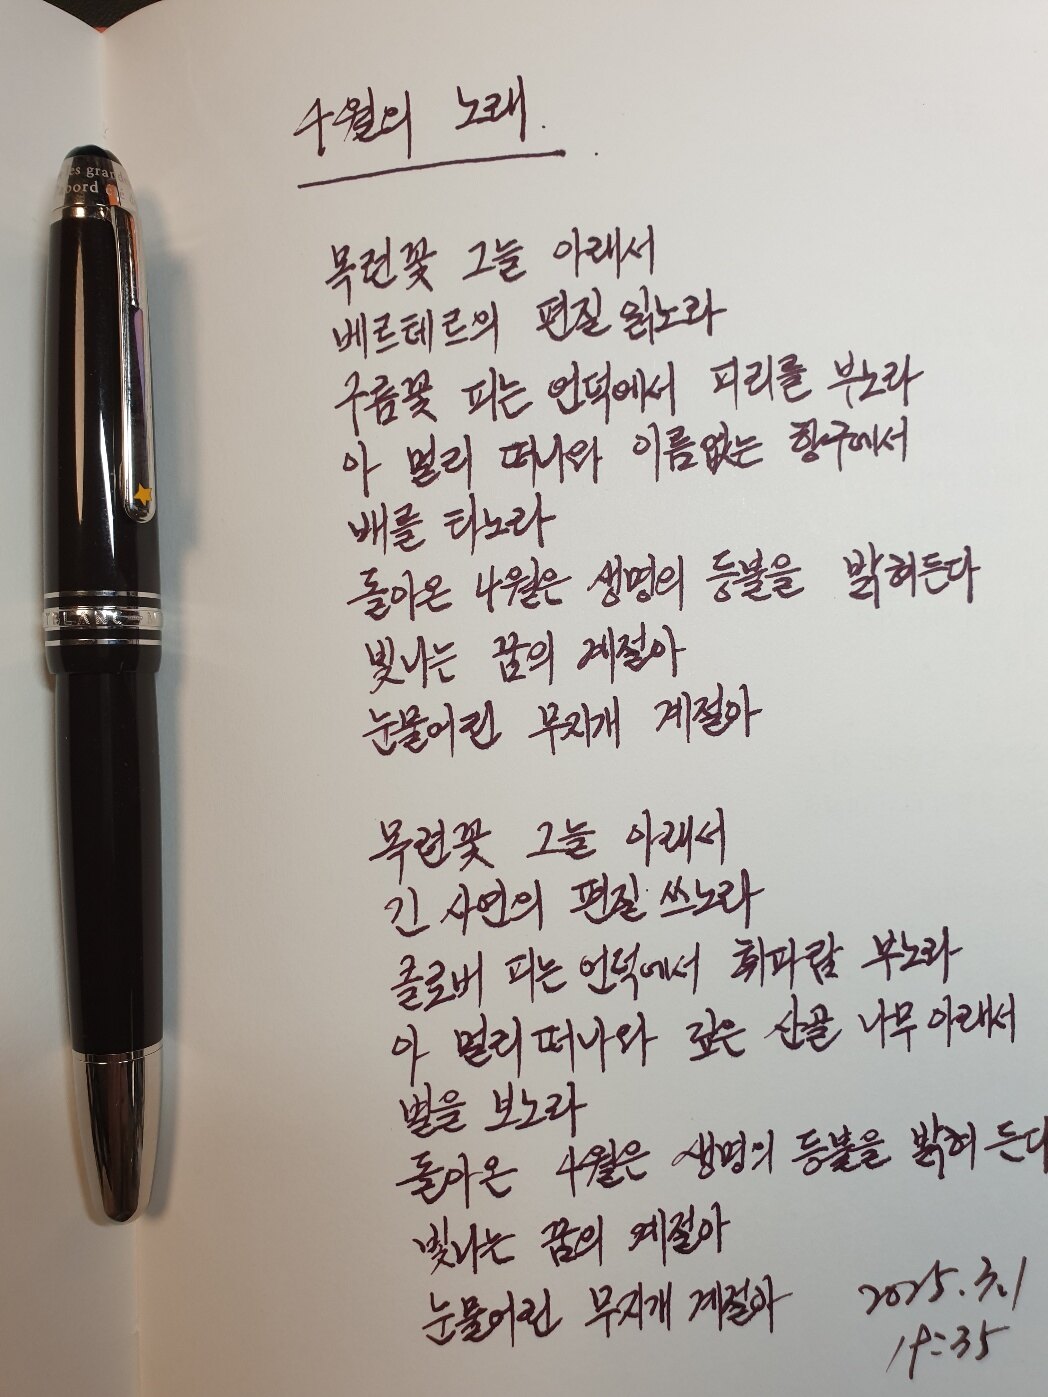 4월의 노래.
목련꽃 그늘 아래서
베르테르의 편질 읽노라
구름꽃 피는 언덕에서 피리를 부노라
아 멀리 떠나와 이름없는 항구에서
배를 타노라
돌아온 4월은 생명의 등불을 밝혀든다
빛나는 꿈의 계절아
눈물어린 무지개 계절아
목련꽃 그늘 아래서
긴 사연의 편질 쓰노라
클로버 피는 언덕에서 휘파람 부노라
아 멀리 떠나와 깊은 산골 나무 아래서
별을 보노라
돌아온 4월은 생명의 등불을 밝혀 든다
빛나는 꿈의 계절아
눈물어린 무지개 계절아
2025.3.1
19:35
es gran
bord
TBLANC - M